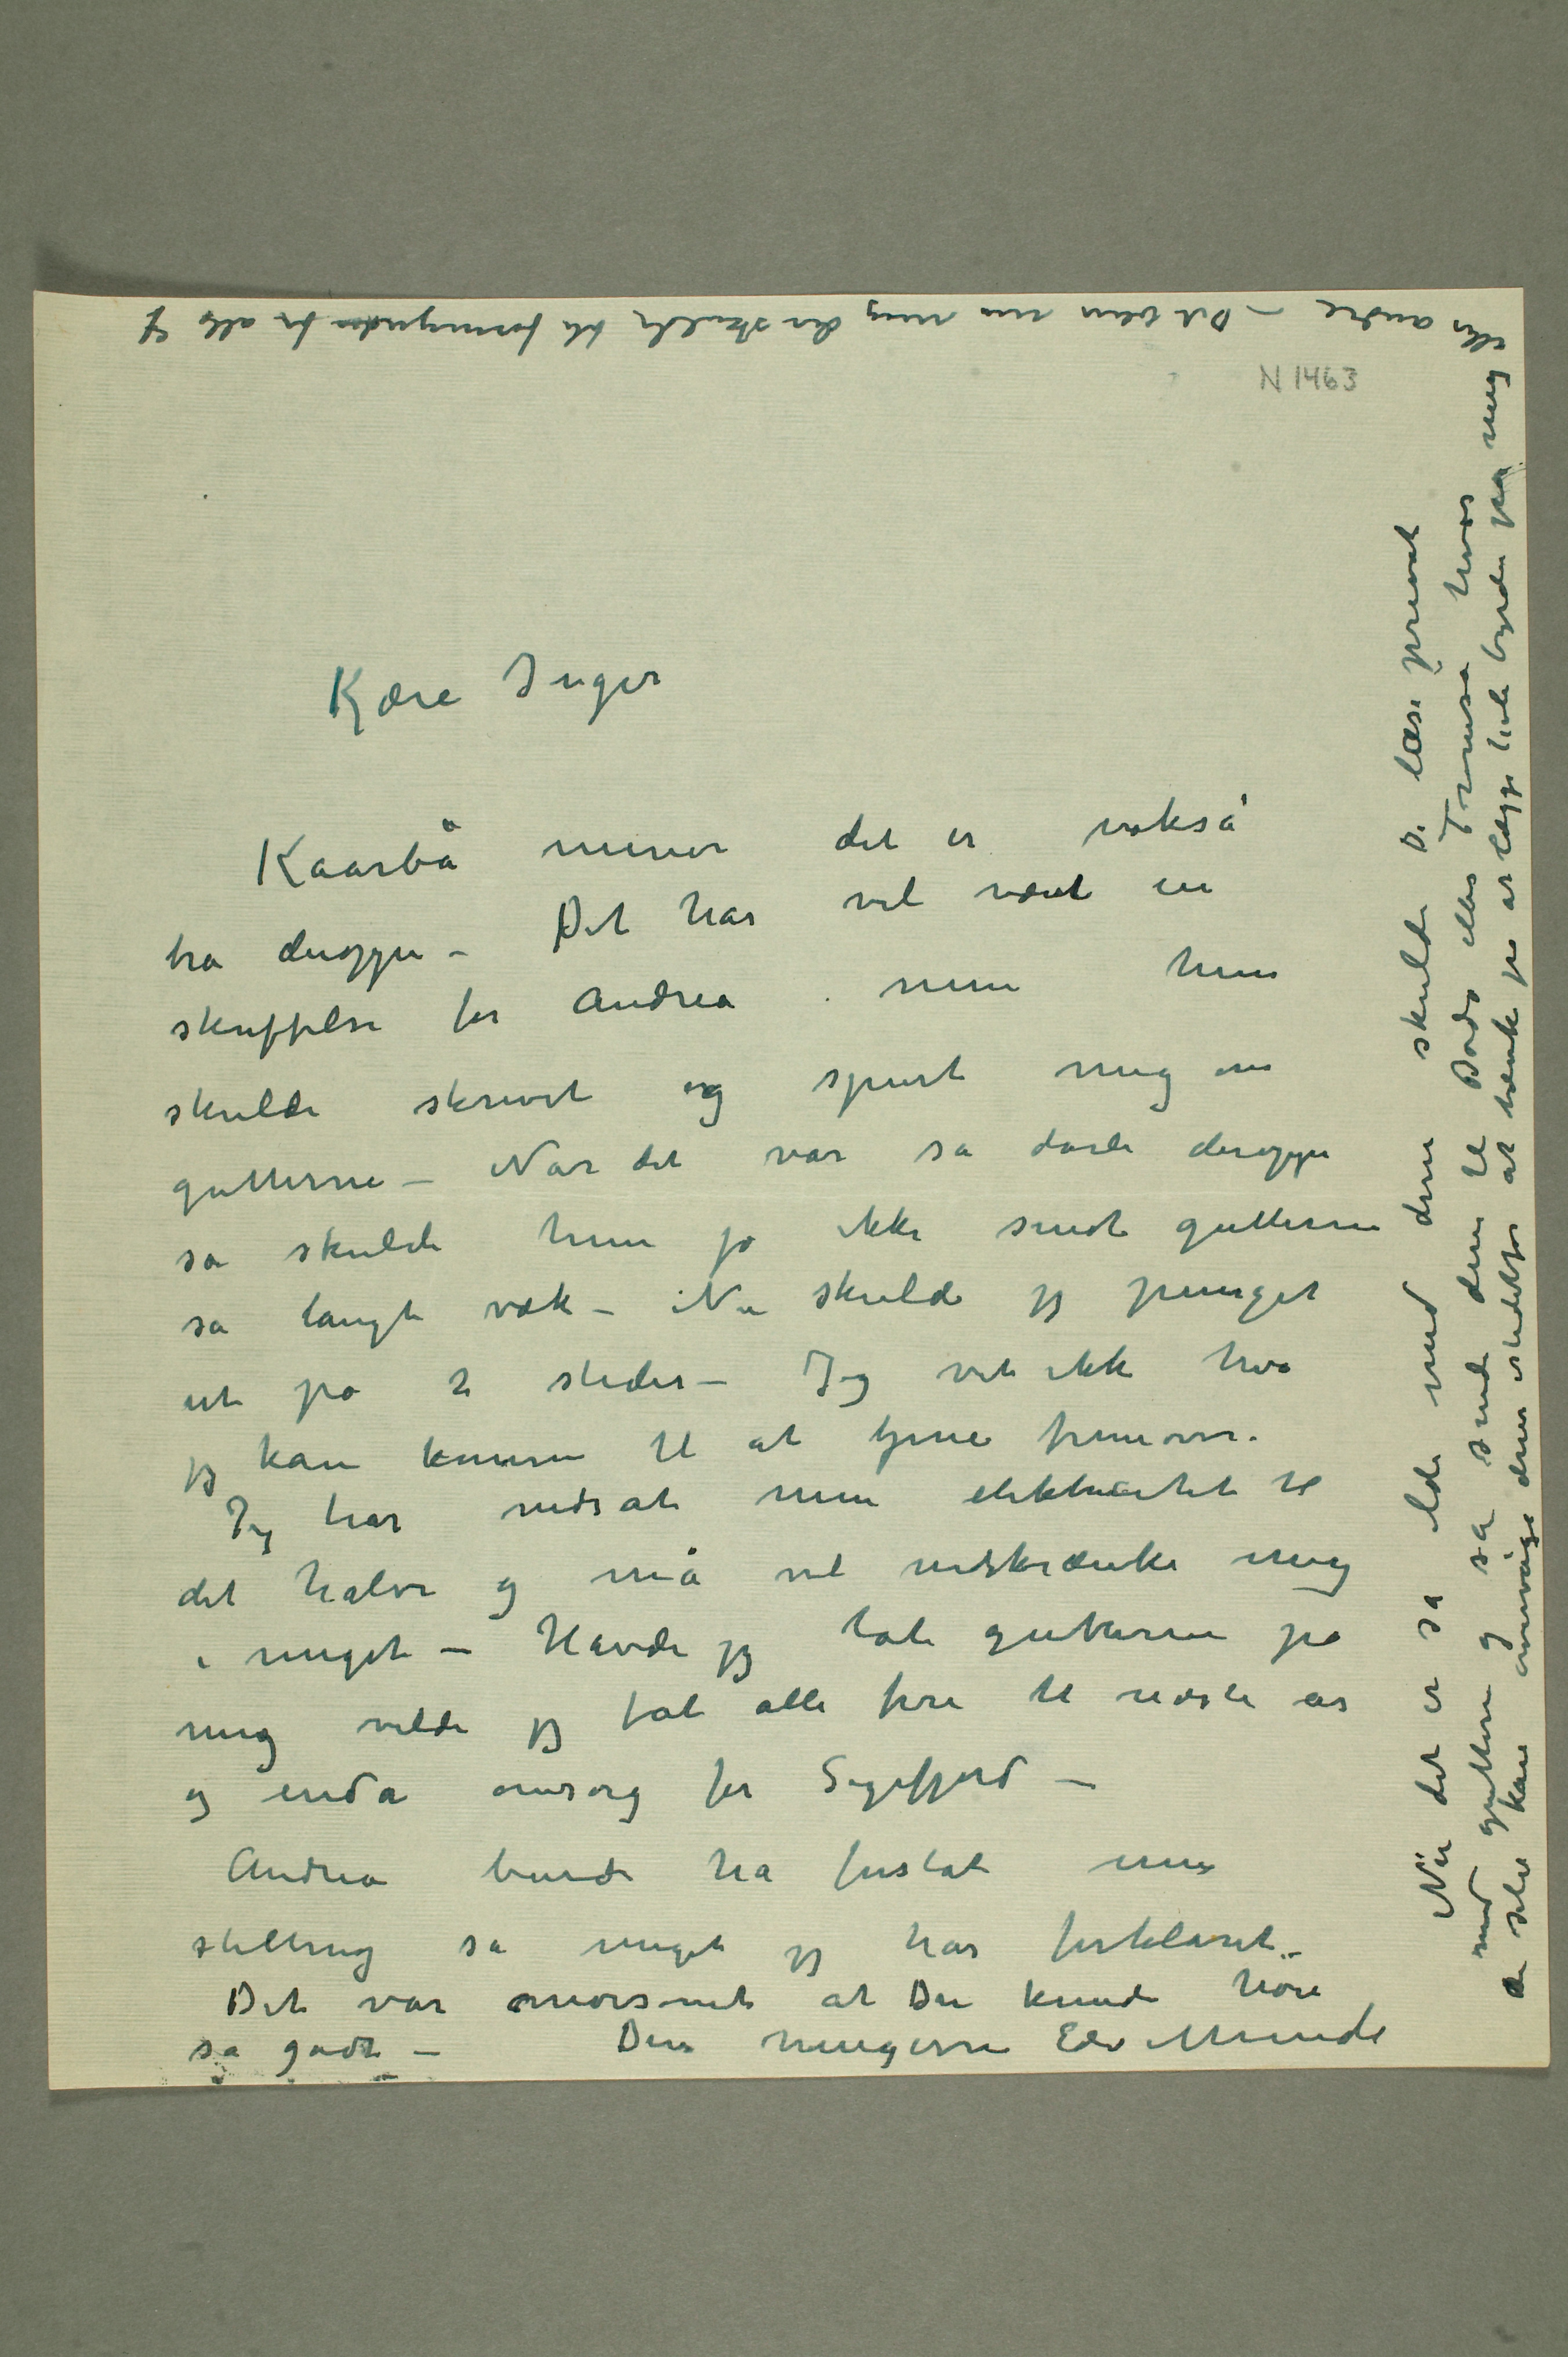 N 1463
Kjære Inger
Kaarbø mener det er ikkeså
bra deroppe – Det har vel været en
skuffelse for Andrea men hun
skulde skrevet og spurt mig om
gutterne – Når det var så dårli deroppe
så skulde hun jo ikke sendt gutterne
så langt væk – Nu skulde jeg punget
ut på 2 steder – Jeg vet ikke hva
jeg kan komme til at tjene fremover.
Jeg har nedsat min elektricitet til
det halve og må vel indskrænke mig
i meget – Havde jeg tat gutterne på
mig vilde jeg fåt alle fire til næste år
og enda omsorg for Sigefjord –
Andrea burde ha forståt min
stilling så meget jeg har forklaret –
Det var morsomt at Du kunde høre
så godt – Din hengivne Edv Munch
Når det er så lidt med dem skulde De læse privat
med guttene og så sende dem til Bodø eller Tromsø hvor
de selv kan overvåge dem istedetfor at tænke på at lægge hele byrden på mig
eller andre – Det blev nu mig der skulde bli formynder for alle 4